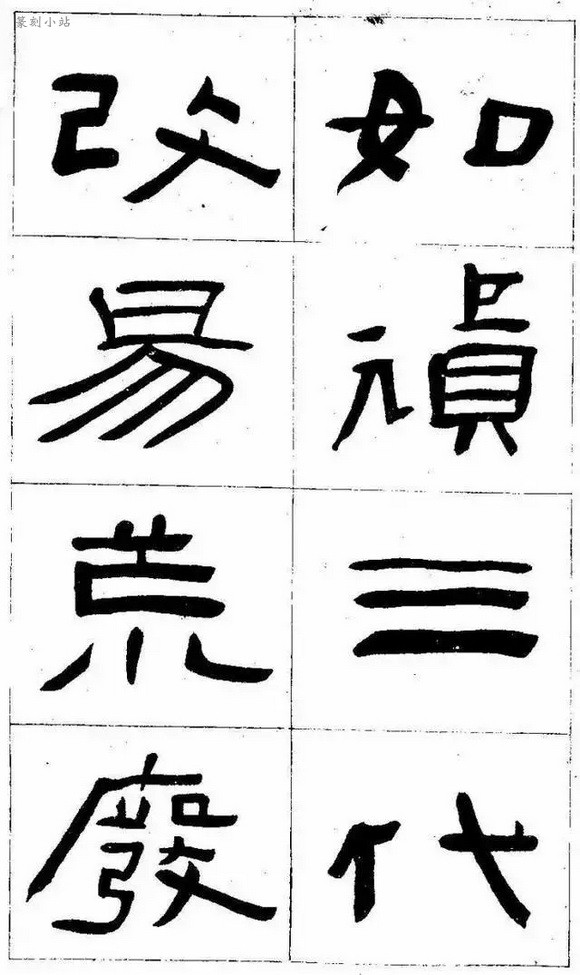 篆刻小站
如禎三代
改易荒廢